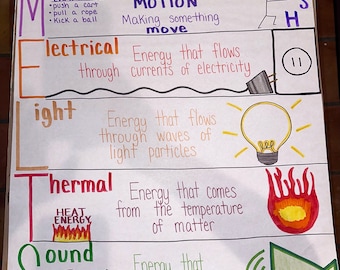 • push a cart
• pull a rope
• Kick a ball
MOTION
Making something
move
S
H
M
Electrical
Energy that flows
through currents of electricity
Light
Energy that flows
through waves of
light particles
Thermal
HEAT
ENERGY
Energy that comes
from the temperature
of matter
Sound
Energy that